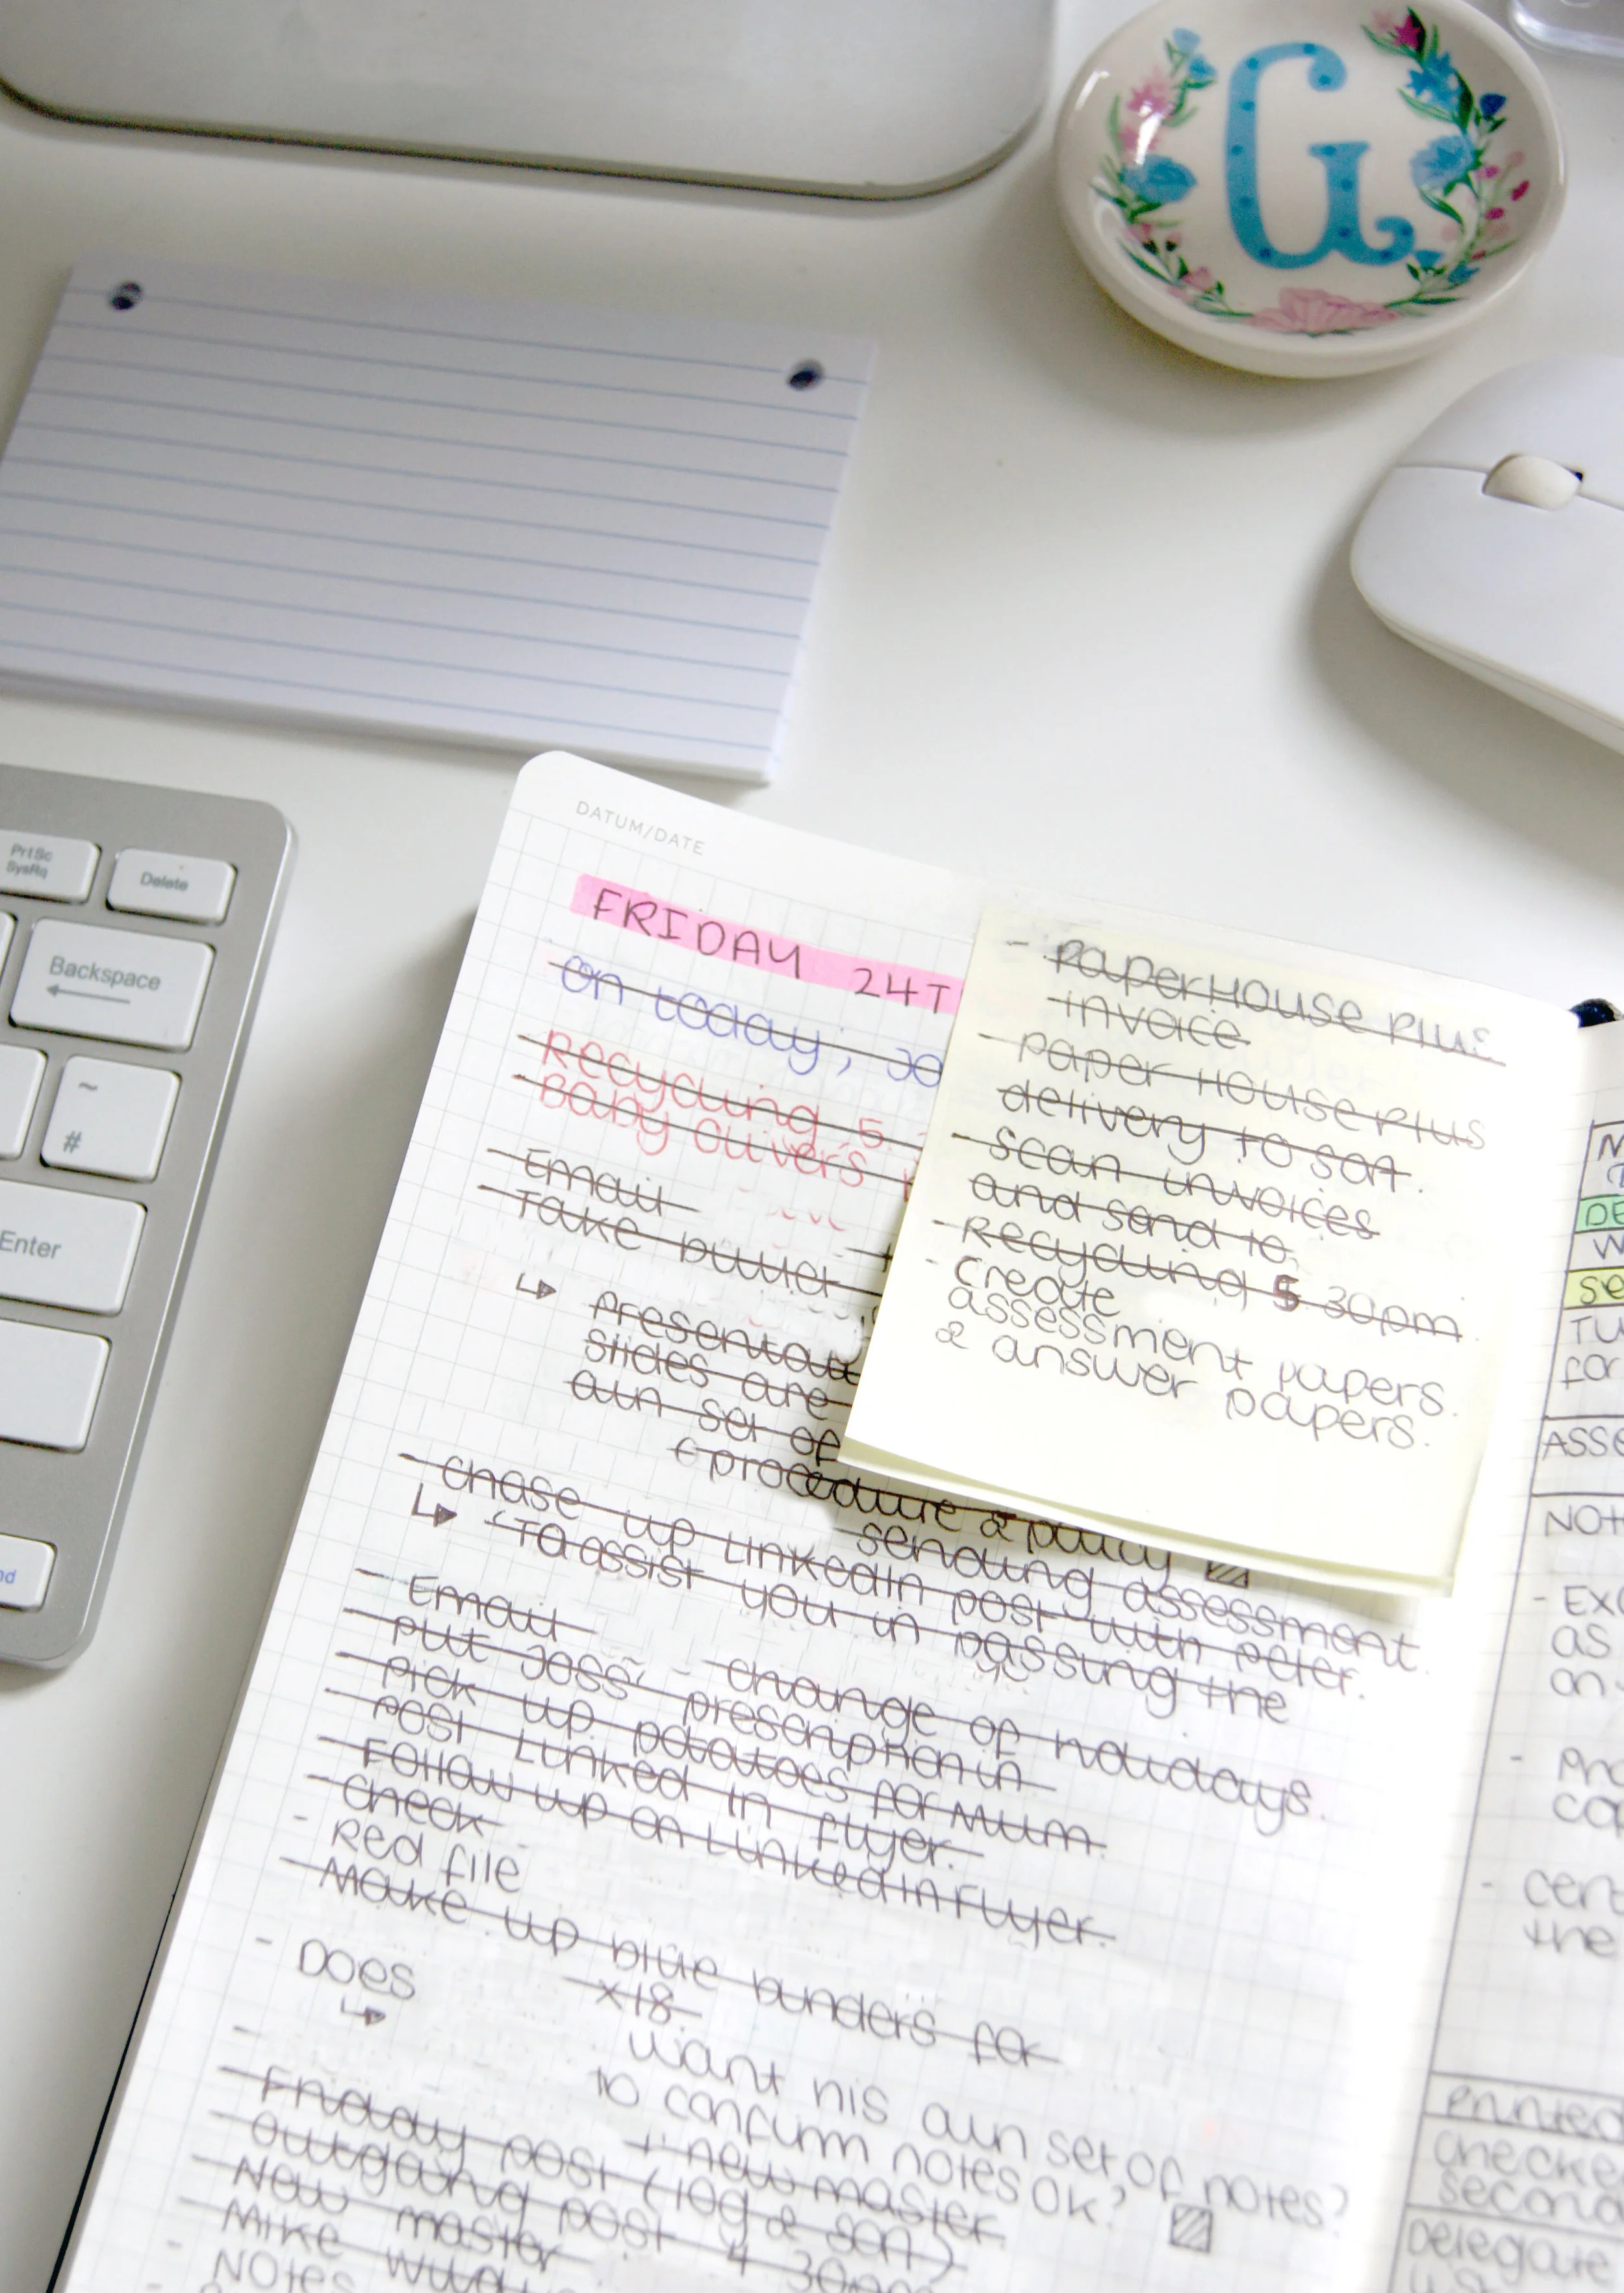 G
PrtSc
SysRq
Delete
Backspace
~
#
Enter
nd
DATUM/DATE
FRIDAY 24T
On today; Jo
Recycling 5.
Baby Oliver's
- Email
- Take
↳ Presentat
Slides are
own set of
(procedure & policy
sending assessment.
- chase up LinkedIn post with peter.
↳ "To assist you in passing the
- Email - change of holidays.
- put Joss' prescription in
- pick up potatoes for mum.
- post Linked in flyer.
- Follow up on LinkedIn Flyer.
- check
- Red file
- Make up blue binders for
x18.
- Does want his own set of notes?
↳ to confirm notes ok?
+ new master
- Friday post (log & son)
- outgoing post 4 30pm
- New master
- Mike
- Notes
- PaperHouse Plus
invoice
- paper House Plus
delivery to sort.
- scan invoices
and send to.
- Recycling 5.30pm.
- create
assessment papers.
& answer papers.
DE
W
SE
TU
for
ASSE
NOT
- EXC
as
on
- Pro
cop
- cert
the
Printed
checke
second
Delegate